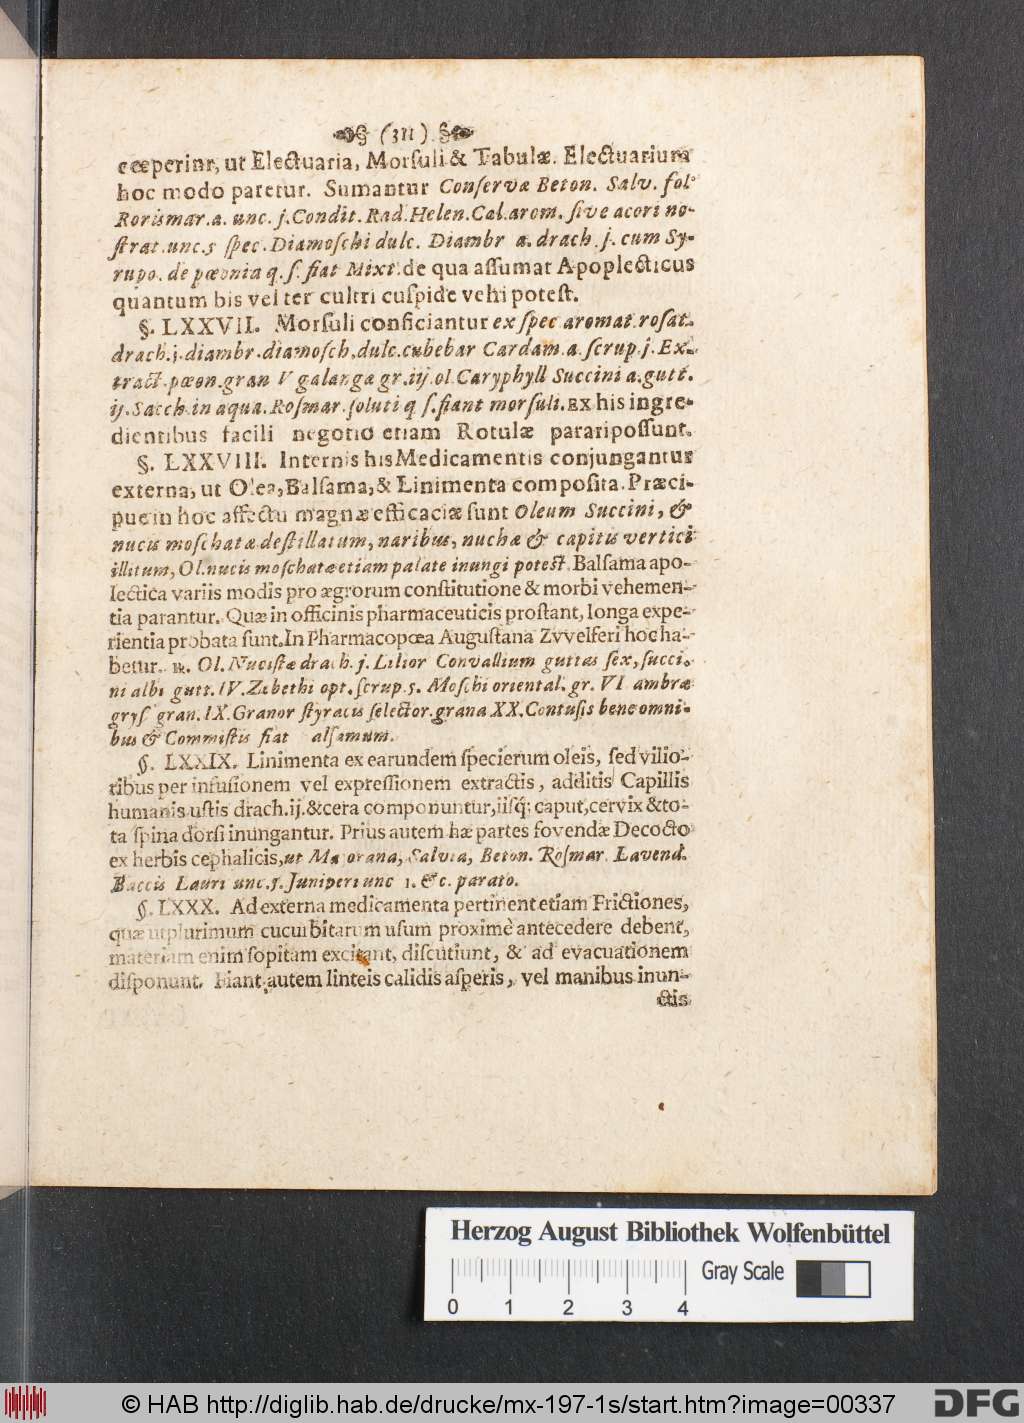 (311)
ceperint, ut Electuaria, Morsuli & Tabulæ. Electuarium
hoc modo paretur. Sumantur Conservæ Beton. Salv. fol
Rorismar. a. unc. j. Condit. Rad. Helen. Cal. arom. sive acori no-
strat. unc. s spec. Diamoschi dulc. Diambr a. drach. j. cum Sy-
rupo. de pæonia q. s. fiat Mixt. de qua assumat Apoplecticus
quantum bis vel ter cultri cuspide vehi potest.
§. LXXVII. Morsuli conficiantur ex spec aromat. rosat.
drach. j. diambr. diamosch. dulc. cubebar Cardam. a. scrup. j. Ex-
tract. pæon. gran V galangæ gr. iij. ol. Caryphyll Succini a. gutt.
ij. Sacch. in aqua. Rosmar. soluti q s. fiant morsuli. Ex his ingre-
dientibus facili negotio etiam Rotulæ parari possunt.
§. LXXVIII. Internis his Medicamentis conjungantur
externa, ut Olea, Balsama, & Linimenta composita. Præci-
pue in hoc affectu magnæ efficaciæ sunt Oleum Succini, &
nucis moschatæ destillatum, naribus, nuchæ & capitis vertici
illitum, Ol. nucis moschatæ etiam palate inungi potest. Balsama apo-
lectica variis modis pro ægrorum constitutione & morbi vehemen-
tia parantur. Quæ in officinis pharmaceuticis prostant, longa expe-
rientia probata sunt. In Pharmacopœa Augustana Zvvelferi hoc ha-
betur. ℞. Ol. Nucistæ drach. j. Lilior Convallium guttas sex, succi-
ni albi gutt. IV. Zibethi opt. scrup. s. Moschi oriental. gr. VI ambræ
grys gran. IX. Granor styracis selector. grana XX. Contusis bene omni-
bus & Commistis fiat alsamum.
§. LXXIX. Linimenta ex earundem specierum oleis, sed vilio-
ribus per infusionem vel expressionem extractis, additis Capillis
humanis ustis drach. ij. & cera componuntur, iisq; caput, cervix & to-
ta spina dorsi inungantur. Prius autem hæ partes fovendæ Decocto
ex herbis cephalicis, ut Majorana, Salvia, Beton. Rosmar. Lavend.
Baccis Lauri unc. s. Juniperi unc 1. &c. parato.
§. LXXX. Ad externa medicamenta pertinent etiam Frictiones,
quæ utplurimum cucurbitarum usum proximè antecedere debent,
materiam enim sopitam excitant, discutiunt, & ad evacuationem
disponunt. Fiant autem linteis calidis asperis, vel manibus inun-
ctis
Herzog August Bibliothek Wolfenbüttel
Gray Scale
0 1 2 3 4
© HAB http://diglib.hab.de/drucke/mx-197-1s/start.htm?image=00337
DFG